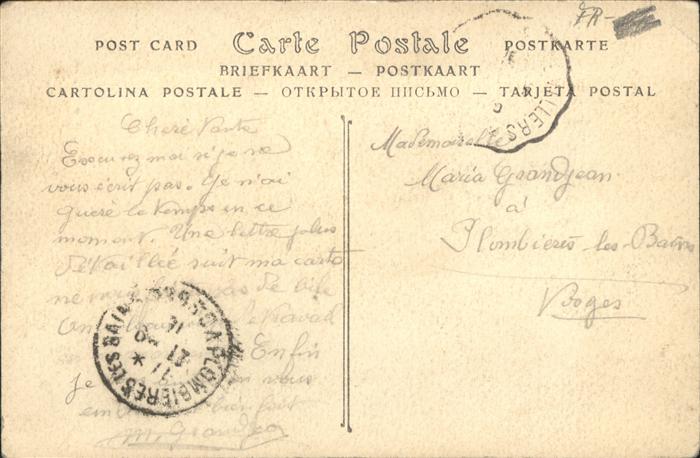 FR-
POST CARD Carte Postale POSTKARTE
BRIEFKAART — POSTKAART
CARTOLINA POSTALE — ОТКРЫТОЕ ПИСЬМО — TARJETA POSTAL
LLERS
Cherè tante
Excusez moi si je ne
vous écrit pas. Je n'ai
guère le temps en ce
moment. Une lettre plus
détaillée suit ma carte
ne pas de bile
travail
Enfin
je vous
bien fort
M. Grandjean
Mademoiselle
Maria Grandjean
à
Plombières-les-Bains
Vosges
PLOMBIERES LES BAINS